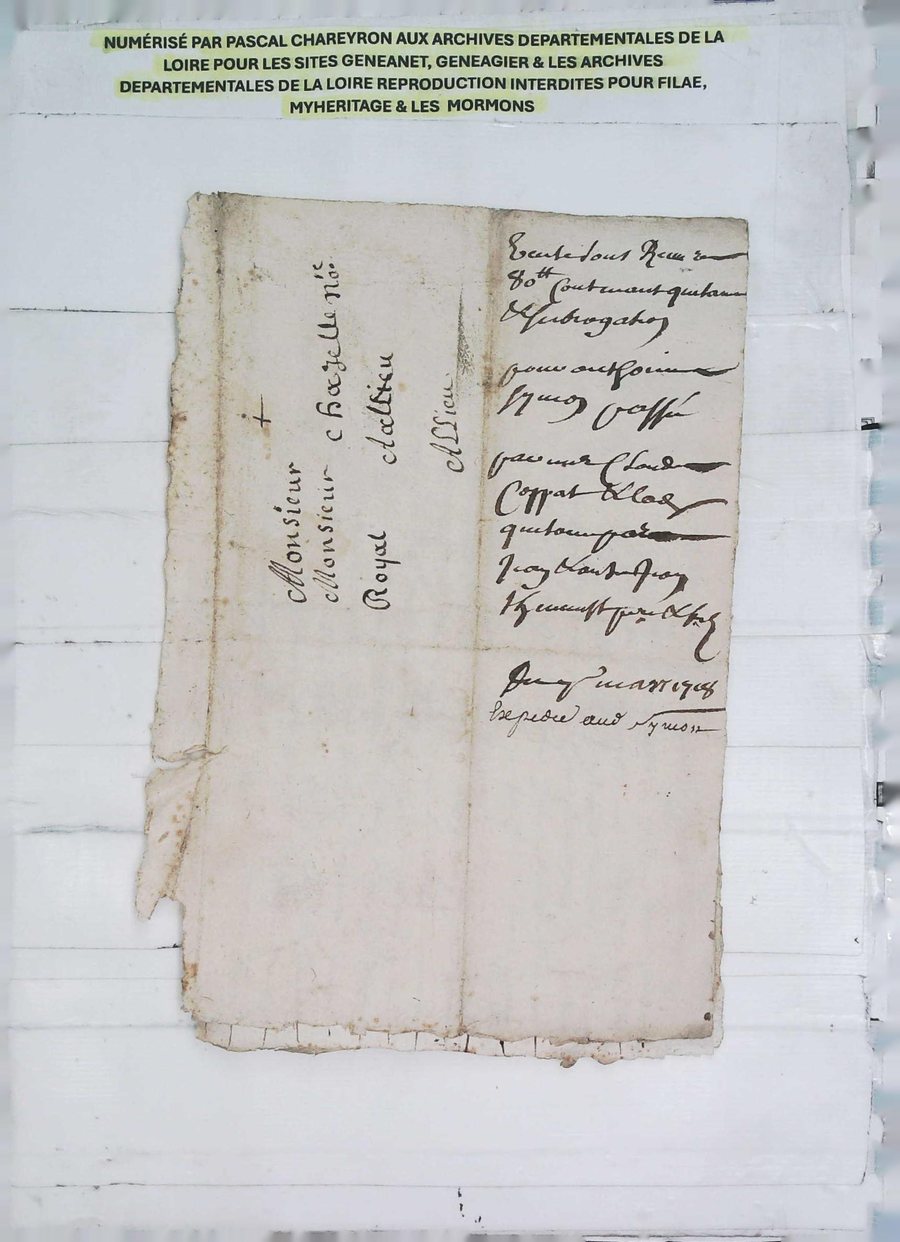 NUMÉRISÉ PAR PASCAL CHAREYRON AUX ARCHIVES DEPARTEMENTALES DE LA
LOIRE POUR LES SITES GENEANET, GENEAGIER & LES ARCHIVES
DEPARTEMENTALES DE LA LOIRE REPRODUCTION INTERDITES POUR FILAE,
MYHERITAGE & LES MORMONS
Monsieur
Monsieur chazelle nore
Royal Aallieu
Allieu
80tt Contenant quitance
& subrogation
pour anthoine
symon passée
par me Claude
Coppat &
quitance par
Jean & autre Jean
père &
Du mars 1708
Expedié aud symon